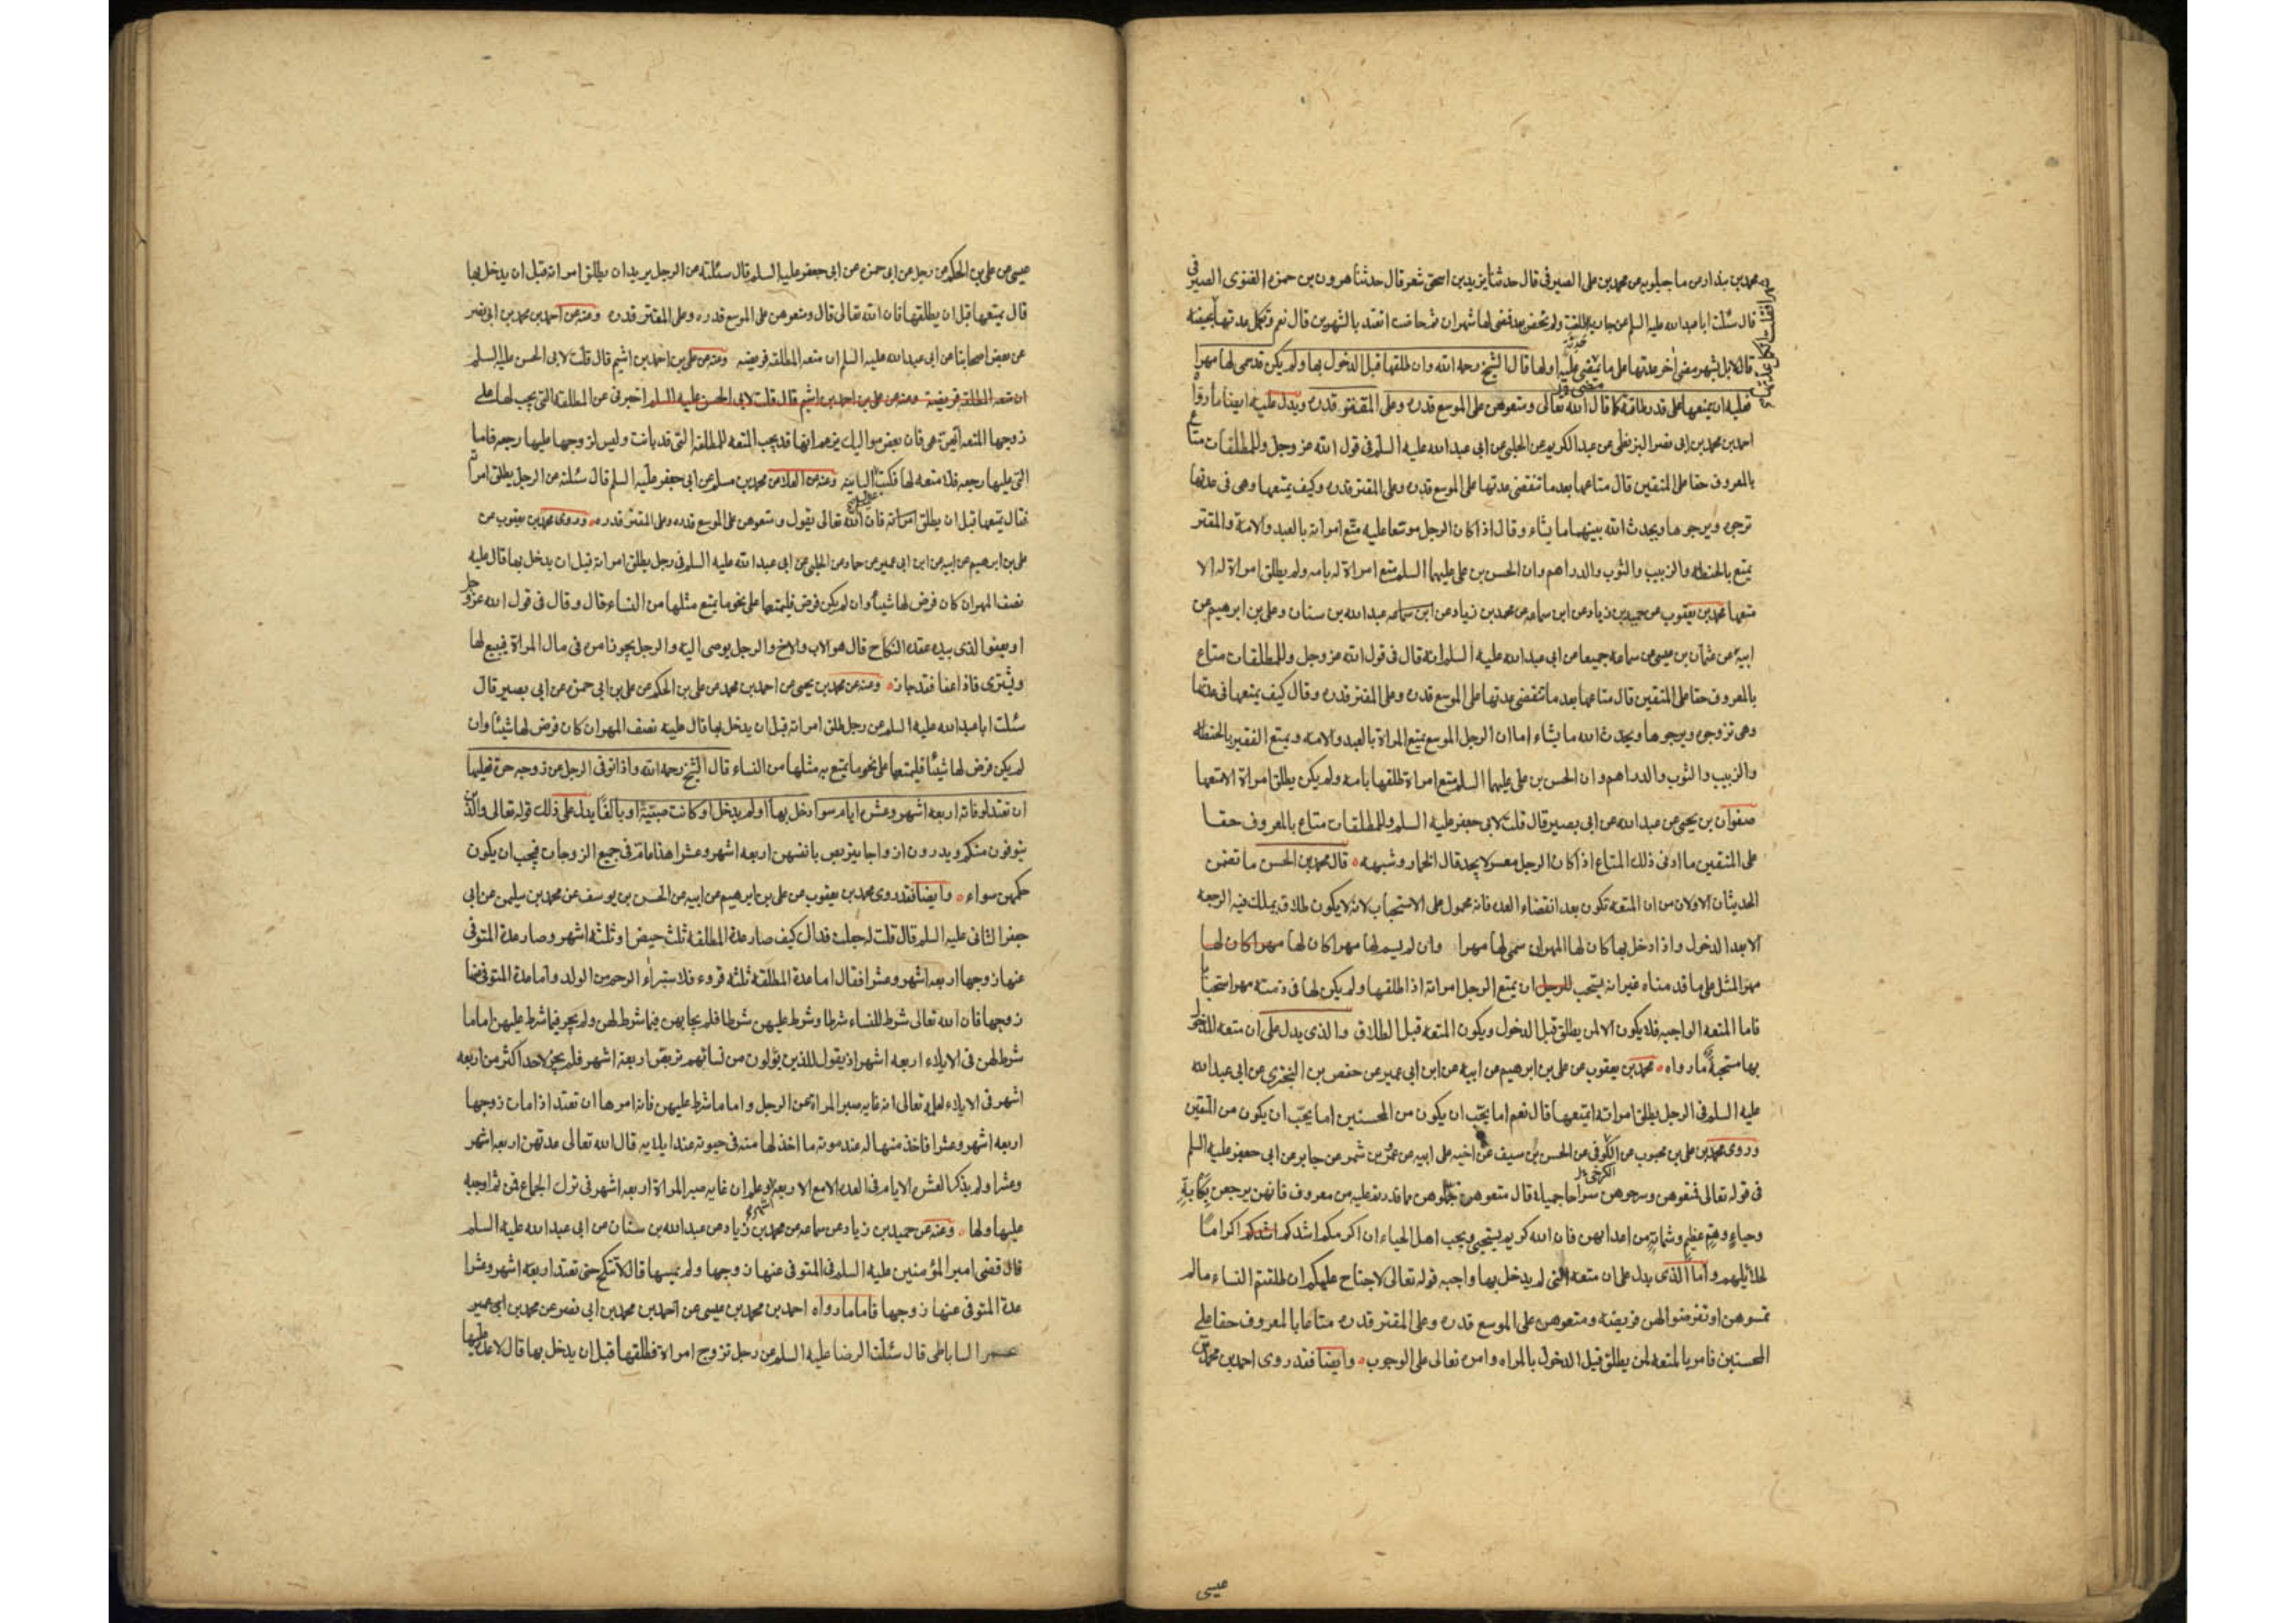 محمد بن بندار من ماجيلويه عن محمد بن على الصيرفى قال حدثنا يزيد بن اسحق شعر قال حدثنا هرون بن حمزه الغنوى الصيرفى
قال سئلت ابا عبدالله عليه السلم عن جاريه طلقت ولم تحض بعد فمضى لها شهران ثم حاضت اتعتد بالشهرين قال نعم وتكمل عدتها بحيضه
فقلت اتكمل عدتها بحيضة
قال لا بل بشهر مضى اخر عدتها على ما يمضى عليه اولها قال الشيخ رحمه الله وان طلقها قبل الدخول بها ولم يكن قد سمى لها مهرا
فعليه ان يمتعها على قدر طاقته كما قال الله تعالى ومتعوهن على الموسع قدره وعلى المقتر قدره ويدل عليه ايضا ما رواه
احمد بن محمد بن ابى نصر البزنطى عن عبد الكريم عن الحلبى عن ابى عبدالله عليه السلم فى قول الله عز وجل وللمطلقات متاع
بالمعروف حقا على المتقين قال متاعها بعد ما تنقضى عدتها على الموسع قدره وعلى المقتر قدره وكيف يمتعها وهى فى عدتها
ترجوه ويرجوها ويحدث الله بينهما ما يشاء وقال اذا كان الرجل موسعا عليه متع امراته بالعبد والامة والمقتر
يمتع بالحنطه والزبيب والثوب والدراهم وان الحسن بن على عليهما السلم متع امراة له بامه ولم يطلق امراة له الا
متعها محمد بن يعقوب عن حميد بن زياد عن ابن سماعه عن محمد بن زياد عن ابن سماعه عبدالله بن سنان وعلى بن ابرهيم عن
ابيه عن عثمان بن عيسى عن سماعه جميعا عن ابى عبدالله عليه السلم انه قال فى قول الله عز وجل وللمطلقات متاع
بالمعروف حقا على المتقين قال متاعها بعد ما تنقضى عدتها على الموسع قدره وعلى المقتر قدره وقال كيف يمتعها فى عدتها
وهى ترجوه ويرجوها ويحدث الله ما يشاء اما ان الرجل الموسع يمتع المراة بالعبد والامه ويمتع الفقير بالحنطه
والزبيب والثوب والدراهم وان الحسن بن على عليهما السلم متع امراة طلقها بامه ولم يكن يطلق امراة الا متعها
صفوان بن يحيى عن عبدالله عن ابى بصير قال قلت لابى جعفر عليه السلم وللمطلقات متاع بالمعروف حقا
على المتقين ما ادنى ذلك المتاع اذا كان الرجل معسر لا يجد قال الخمار وشبهه قال محمد بن الحسن ما تضمن
الحديثان الاولان من ان المتعه تكون بعد انقضاء العده فانه محمول على الاستحباب لانه لا يكون طلاق يملك فيه الرجعه
الا بعد الدخول واذا دخل بها كان لها المهر ان سمى لها مهرا وان لم يسم لها مهرا كان لها مهرا كان لها
مهر المثل على ما قدمناه غير انه يستحب للرجل ان يمتع الرجل امراته اذا طلقها ولم يكن لها فى ذمته مهر استحبابا
فاما المتعه الواجبه فلا يكون الا لمن يطلق قبل الدخول ويكون المتعه قبل الطلاق والذى يدل على ان متعه المدخول
بها مستحبة ما رواه محمد بن يعقوب عن على بن ابرهيم عن ابيه عن ابن ابى عمير عن حفص بن البخترى عن ابى عبدالله
عليه السلم فى الرجل يطلق امراته ايمتعها قال نعم اما يحب ان يكون من المحسنين اما يحب ان يكون من المتقين
وروى محمد بن على بن محبوب عن الكوفى عن الحسن بن سيف عن اخيه على ابيه عن عمرو بن شمر عن جابر عن ابى جعفر عليه السلم
فى قوله تعالى فمتعوهن وسرحوهن سراحا جميلا قال متعوهن جملوهن ما قدرتم عليه من معروف فانهن يرجعن بكآبة
وحياء وهم عظيم وشماتة من اعدائهن فان الله كريم يستحيى ويحب اهل الحياء ان اكرمكم اشدكم اشدكم اكراما
لحلائلهم واما الذى يدل على ان متعه التى لم يدخل بها واجبه قوله تعالى لا جناح عليكم ان طلقتم النساء ما لم
تمسوهن او تفرضوا لهن فريضة ومتعوهن على الموسع قدره وعلى المقتر قدره متاعا بالمعروف حقا على
المحسنين فامر بالمتعه لمن يطلق قبل الدخول بالمراه وامره تعالى على الوجوب وايضا فقد روى احمد بن محمد بن
عيسى
عيسى عن على بن الحكم عن رجل عن ابى حمزه عن ابى جعفر عليه السلم قال سئلته عن الرجل يريد ان يطلق امراته قبل ان يدخل بها
قال يمتعها قبل ان يطلقها فان الله تعالى قال ومتعوهن على الموسع قدره وعلى المقتر قدره وعنه عن احمد بن محمد بن ابى نصر
عن بعض اصحابنا عن ابى عبدالله عليه السلم ان متعه المطلقه فريضه وعنه عن على بن احمد بن اشيم قال قلت لابى الحسن عليه السلم
ان متعه المطلقه فريضة وعنه عن على بن احمد بن اشيم قال قلت لابى الحسن عليه السلم اخبرنى عن المطلقه التى يجب لها على
زوجها المتعه ايتهن هى فان بعض مواليك يزعم انها قد يجب المتعه للمطلقة التى قد بانت وليس لزوجها عليها رجعه فاما
التى عليها رجعه فلا متعه لها فكتب البائنه وعنه عن العلا عن محمد بن مسلم عن ابى جعفر عليه السلم قال سئلته عن الرجل يطلق امراته
فقال يمتعها قبل ان يطلق امراته فان الله تعالى يقول ومتعوهن على الموسع قدره وعلى المقتر قدره وروى محمد بن يعقوب عن
على بن ابرهيم عن ابيه عن ابن ابى عمير عن حماد عن الحلبى عن ابى عبدالله عليه السلم فى رجل يطلق امراته قبل ان يدخل بها قال عليه
نصف المهر ان كان فرض لها شيئا وان لم يكن فرض فليمتعها على نحو ما يمتع مثلها من النساء قال وقال فى قول الله عز وجل
او يعفوا الذى بيده عقده النكاح قال هو الاب والاخ والرجل يوصى اليه والرجل يجوز امره فى مال المراة فيبيع لها
ويشترى فاذا عفا فقد جاز وعنه عن محمد بن يحيى عن احمد بن محمد عن على بن الحكم عن على بن ابى حمزه عن ابى بصير قال
سئلت ابا عبدالله عليه السلم عن رجل طلق امراته قبل ان يدخل بها قال عليه نصف المهر ان كان فرض لها شيئا وان
لم يكن فرض لها شيئا فليمتعها على نحو ما يمتع به مثلها من النساء قال الشيخ رحمه الله واذا توفى الرجل عن زوجه حرة فعليها
ان تعتد لوفاته اربعه اشهر وعشره ايام سواء دخل بها او لم يدخل او كانت صبية او بالغا يدل على ذلك قوله تعالى والذين
يتوفون منكم ويذرون ازواجا يتربصن بانفسهن اربعه اشهر وعشرا هذا عام فى جميع الزوجات فيجب ان يكون
حكمهن سواء وايضا فقد روى محمد بن يعقوب عن على بن ابرهيم عن ابيه عن الحسين بن يوسف عن محمد بن سليمن عن ابى
جعفر الثانى عليه السلم قال قلت له جعلت فداك كيف صار عدة المطلقه ثلث حيض او ثلثه اشهر وصار عدة المتوفى
عنها زوجها اربعه اشهر وعشرا فقال اما عدة المطلقه ثلثه قروء فلاستبراء الرحم من الولد واما عدة المتوفى عنها
زوجها فان الله تعالى شرط للنساء شرطا وشرط عليهن شرطا فلم يحابهن فيما شرط لهن ولم يجر فيما شرط عليهن اما ما
شرط لهن فى الايلاء اربعه اشهر اذ يقول للذين يؤلون من نسائهم تربص اربعة اشهر فلم يجز لاحد اكثر من اربعه
اشهر فى الايلاء لعلمه تعالى انه غايه صبر المراة عن الرجل واما ما شرط عليهن فانه امرها ان تعتد اذا مات زوجها
اربعه اشهر وعشرا فاخذ منها له عند موته ما اخذ لها منه فى حيوته عند ايلايه قال الله تعالى عدتهن اربعه اشهر
وعشرا ولم يذكر العشره الايام فى العده الا مع الاربعه اشهر وعلم ان غايه صبر المراة اربعه اشهر فى ترك الجماع فمن ثم اوجبه
عليها ولها وعنه عن حميد بن زياد عن ابن سماعه عن محمد بن زياد عن عبدالله بن سنان عن ابى عبدالله عليه السلم
قال قضى امير المؤمنين عليه السلم فى المتوفى عنها زوجها ولم يمسها قال لا تنكح حتى تعتد اربعه اشهر وعشرا
عدة المتوفى عنها زوجها فاما ما رواه احمد بن محمد بن عيسى عن احمد بن محمد بن ابى نصر عن محمد بن ابى عمير
الساباطى قال سئلت الرضا عليه السلم عن رجل تزوج امراة فطلقها قبل ان يدخل بها قال لا عدة عليها